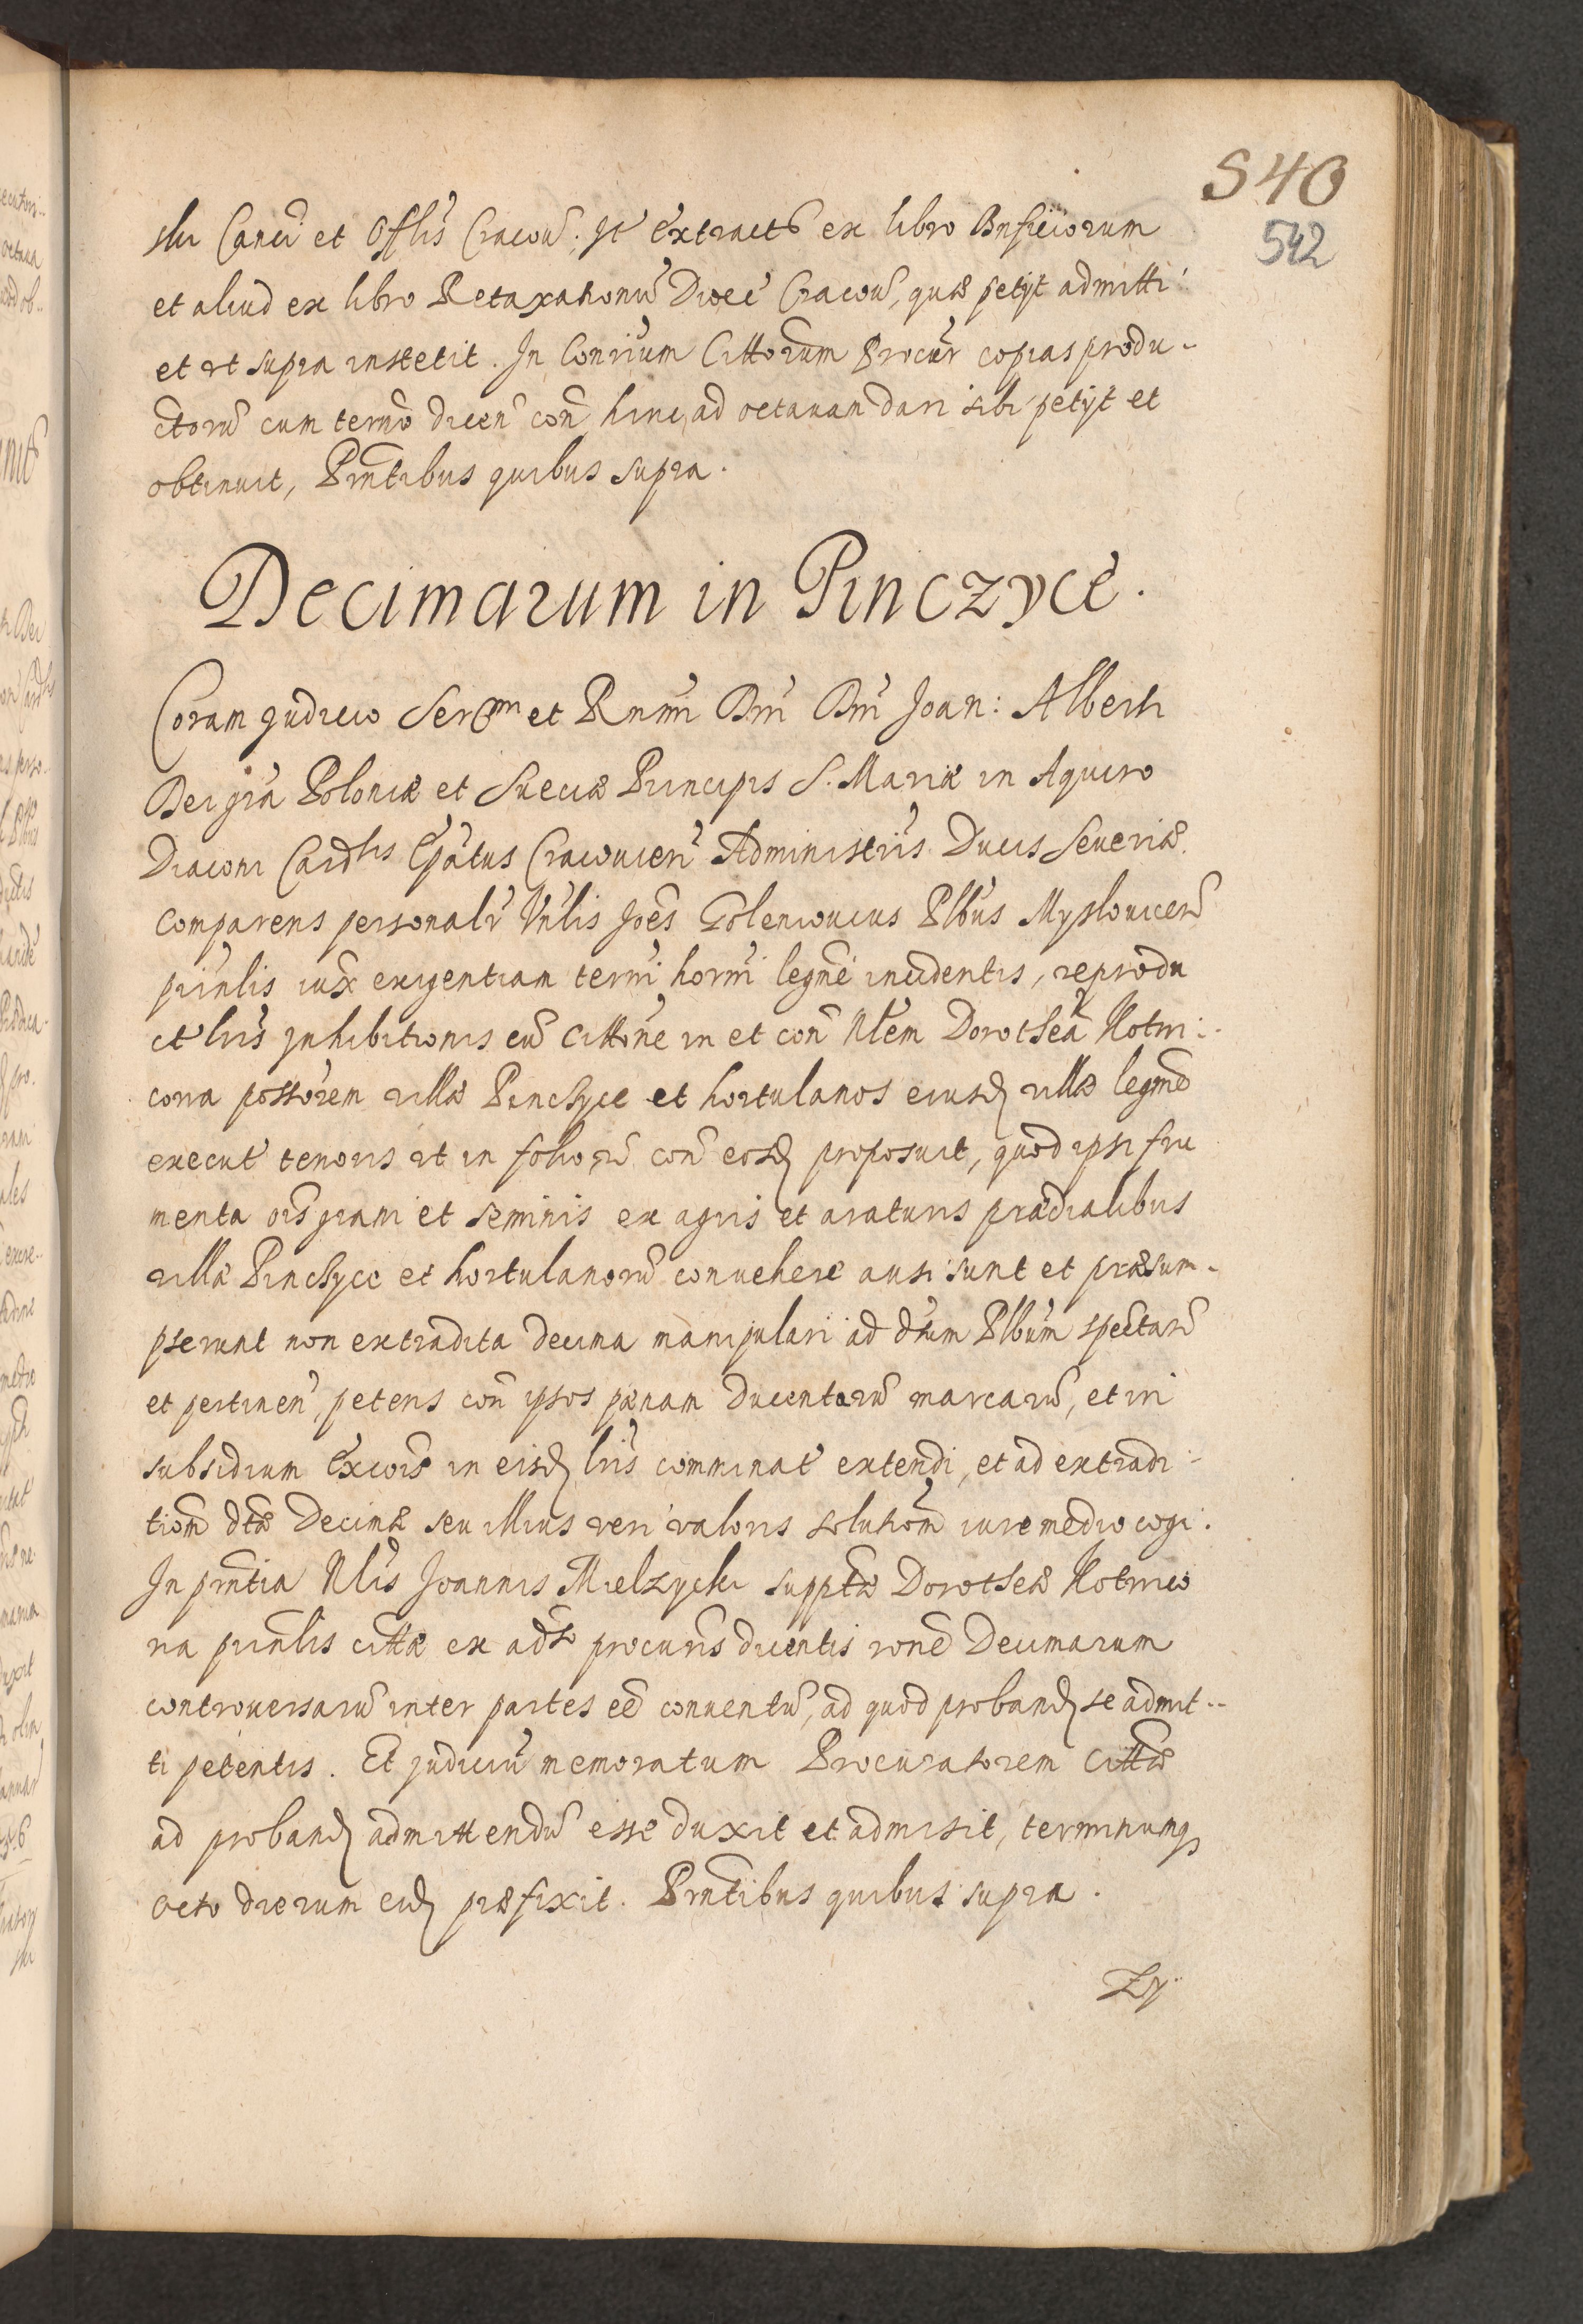 540
542
slu Canci et Offlis Cracou. It Extractũ ex libro Bnficiorum
et aliud ex libro Retaxationũ Dioec Cracou, quæ petÿt admitti
et ut supra institit. In Conrium Cittorum Procur copias produ-
ctorũ cum termo dicen con hinc ad octauam dari sibi petÿt et
obtinuit, Pñtibus quibus supra.
Decimarum in Pinczyce.
Coram Judicio Serᵐⁱ et Rñmi Dñi Dñi Joan: Alberti
Dei gra Poloniæ et Sueciæ Principis S. Mariæ in Aquiro
Diaconi Cardlis Epatus Cracouien Administris Ducis Seueriæ.
Comparens personalr Vnlis Joes Goleniouius Plbus Myslouicen
prinlis iux exigentiam termi horni legme incidentis, reprodu
cit lris Inhibitionis cũ Cittone in et con Nlem Dorotheã Kotwi-
cona possorem uillæ Pinchyce et hortulanos eiusd uillæ legme
execut tenoris ut in folio rũ con eosd proposuit, quod ipsi fru
menta ois grani et seminis ex agris et araturis prædialibus
uillæ Pinchyce et hortulanorũ conuehere ausi sunt et præsum-
pserunt non extradita decima manipulari ad dtum Plbum spectan
et pertinen, petens con ipsos pænam Ducentarũ marcarũ, et in
subsidium Excois in eisd lris comminat extendi, et ad extradi-
tiom dtæ Decimæ seu illius ueri ualoris solutiom iure medio cogi.
In pñtia Nlis Joannis Mielzycki supptæ Dorotheæ Kotwico
na prinlis cittæ ex adso procuris dicentis rone Decimarum
controuersarũ inter partes ee conuentũ, ad quod proband se admit-
ti petentis. Et Judiciũ memoratum Procuratorem Cittæ
ad proband admittendũ esse duxit et admisit, terminumq
octo dierum eid præfixit. Pñtibus quibus supra.